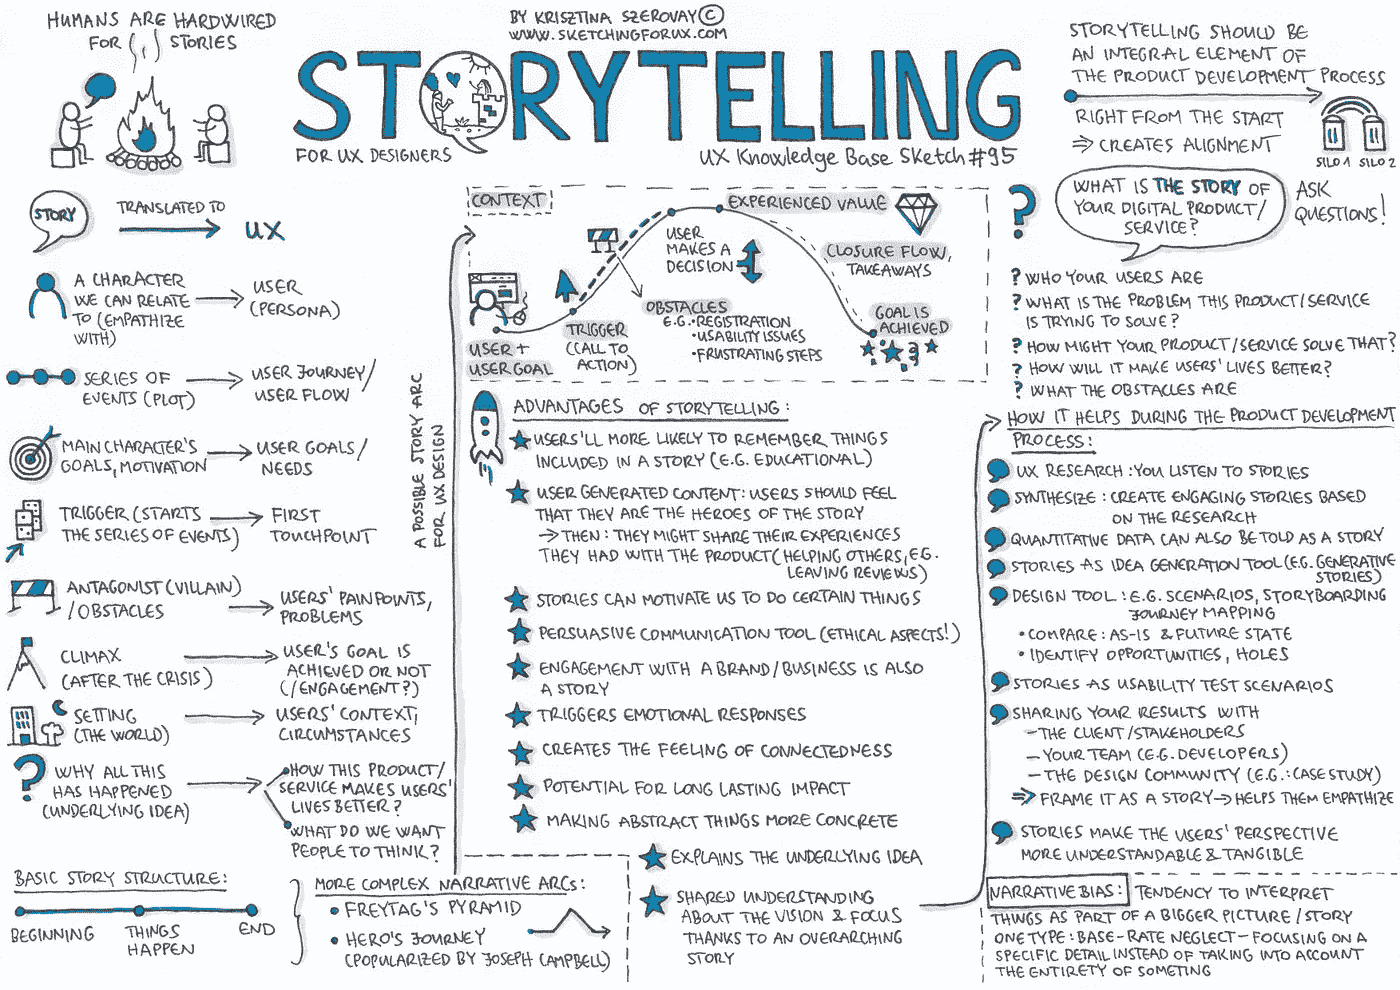 HUMANS ARE HARDWIRED
FOR STORIES
BY KRISZTINA SZEROVAY ©
WWW.SKETCHINGFORUX.COM
STORYTELLING
FOR UX DESIGNERS
UX Knowledge Base Sketch #95
STORYTELLING SHOULD BE
AN INTEGRAL ELEMENT OF
THE PRODUCT DEVELOPMENT PROCESS
RIGHT FROM THE START
⇒ CREATES ALIGNMENT
SILO 1 SILO 2
STORY
TRANSLATED TO
UX
A CHARACTER
WE CAN RELATE
TO (EMPATHIZE
WITH)
→ USER
(PERSONA)
SERIES OF
EVENTS (PLOT)
→ USER JOURNEY/
USER FLOW
MAIN CHARACTER'S
GOALS, MOTIVATION
→ USER GOALS/
NEEDS
TRIGGER (STARTS
THE SERIES OF EVENTS)
→ FIRST
TOUCHPOINT
ANTAGONIST (VILLAIN)
/OBSTACLES
→ USERS' PAINPOINTS,
PROBLEMS
CLIMAX
(AFTER THE CRISIS)
→ USER'S GOAL IS
ACHIEVED OR NOT
(/ENGAGEMENT?)
SETTING
(THE WORLD)
→ USERS' CONTEXT,
CIRCUMSTANCES
WHY ALL THIS
HAS HAPPENED
(UNDERLYING IDEA)
→ HOW THIS PRODUCT/
SERVICE MAKES USERS'
LIVES BETTER?
WHAT DO WE WANT
PEOPLE TO THINK?
BASIC STORY STRUCTURE:
BEGINNING
THINGS
HAPPEN
END
MORE COMPLEX NARRATIVE ARCS:
• FREYTAG'S PYRAMID
• HERO'S JOURNEY
(POPULARIZED BY JOSEPH CAMPBELL)
A POSSIBLE STORY ARC
FOR UX DESIGN
CONTEXT
USER +
USER GOAL
TRIGGER
(CALL TO
ACTION)
OBSTACLES
E.G. • REGISTRATION
• USABILITY ISSUES
• FRUSTRATING STEPS
USER
MAKES A
DECISION
EXPERIENCED VALUE
CLOSURE FLOW,
TAKEAWAYS
GOAL IS
ACHIEVED
ADVANTAGES OF STORYTELLING:
USERS'LL MORE LIKELY TO REMEMBER THINGS
INCLUDED IN A STORY (E.G. EDUCATIONAL)
USER GENERATED CONTENT: USERS SHOULD FEEL
THAT THEY ARE THE HEROES OF THE STORY
→ THEN: THEY MIGHT SHARE THEIR EXPERIENCES
THEY HAD WITH THE PRODUCT (HELPING OTHERS, E.G.
LEAVING REVIEWS)
STORIES CAN MOTIVATE US TO DO CERTAIN THINGS
PERSUASIVE COMMUNICATION TOOL (ETHICAL ASPECTS!)
ENGAGEMENT WITH A BRAND/BUSINESS IS ALSO
A STORY
TRIGGERS EMOTIONAL RESPONSES
CREATES THE FEELING OF CONNECTEDNESS
POTENTIAL FOR LONG LASTING IMPACT
MAKING ABSTRACT THINGS MORE CONCRETE
EXPLAINS THE UNDERLYING IDEA
SHARED UNDERSTANDING
ABOUT THE VISION & FOCUS
THANKS TO AN OVERARCHING
STORY
? WHAT IS THE STORY OF
YOUR DIGITAL PRODUCT/
SERVICE?
ASK
QUESTIONS!
? WHO YOUR USERS ARE
? WHAT IS THE PROBLEM THIS PRODUCT/SERVICE
IS TRYING TO SOLVE?
? HOW MIGHT YOUR PRODUCT/SERVICE SOLVE THAT?
? HOW WILL IT MAKE USERS' LIVES BETTER?
? WHAT THE OBSTACLES ARE
HOW IT HELPS DURING THE PRODUCT DEVELOPMENT
PROCESS:
UX RESEARCH: YOU LISTEN TO STORIES
SYNTHESIZE: CREATE ENGAGING STORIES BASED
ON THE RESEARCH
QUANTITATIVE DATA CAN ALSO BE TOLD AS A STORY
STORIES AS IDEA GENERATION TOOL (E.G. GENERATIVE
STORIES)
DESIGN TOOL: E.G. SCENARIOS, STORYBOARDING
JOURNEY MAPPING
• COMPARE: AS-IS & FUTURE STATE
• IDENTIFY OPPORTUNITIES, HOLES
STORIES AS USABILITY TEST SCENARIOS
SHARING YOUR RESULTS WITH
– THE CLIENT/STAKEHOLDERS
– YOUR TEAM (E.G. DEVELOPERS)
– THE DESIGN COMMUNITY (E.G.: CASE STUDY)
⇒ FRAME IT AS A STORY → HELPS THEM EMPATHIZE
STORIES MAKE THE USERS' PERSPECTIVE
MORE UNDERSTANDABLE & TANGIBLE
NARRATIVE BIAS: TENDENCY TO INTERPRET
THINGS AS PART OF A BIGGER PICTURE/STORY
ONE TYPE: BASE-RATE NEGLECT – FOCUSING ON A
SPECIFIC DETAIL INSTEAD OF TAKING INTO ACCOUNT
THE ENTIRETY OF SOMETING